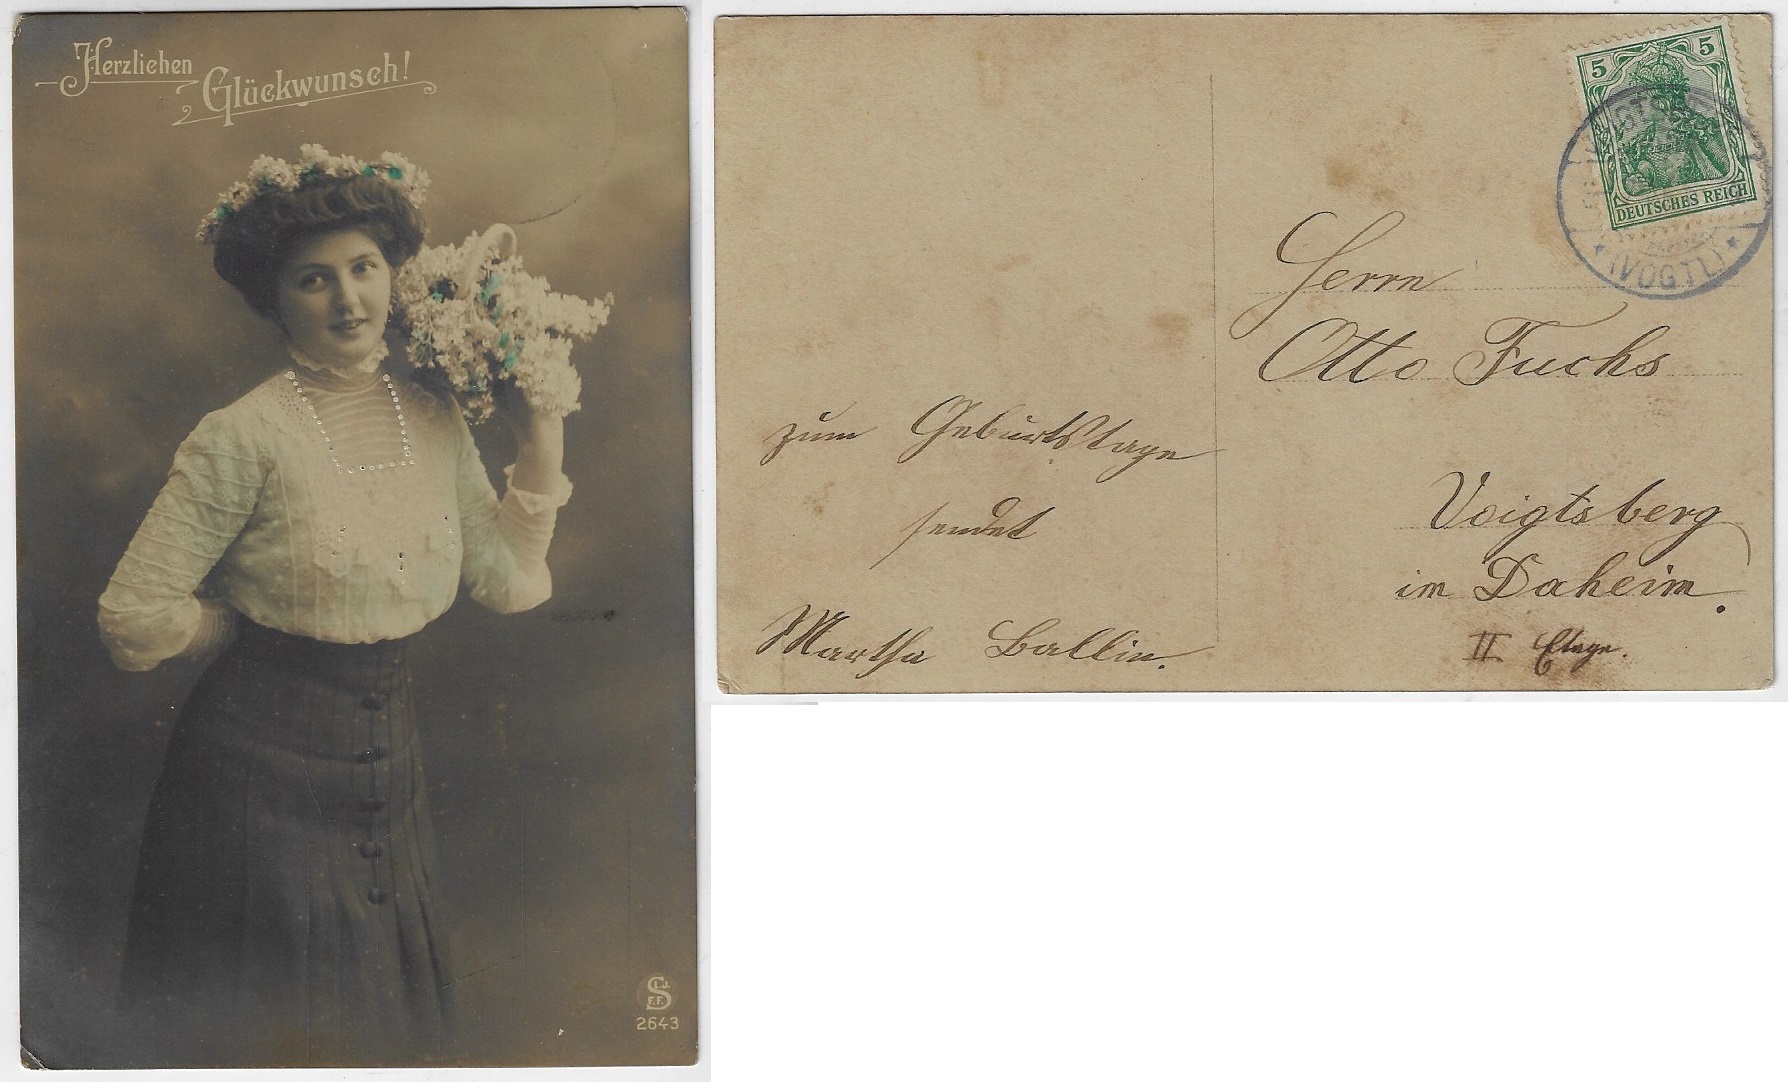 Herzlichen
Glückwunsch!
S
L.J.
F.F.
2643
5 5
DEUTSCHES REICH
(VOGTL)
Herrn
Otto Fuchs
Voigtsberg
im Daheim.
II Etage.
zum Geburtstage
sendet
Martha Ballin.